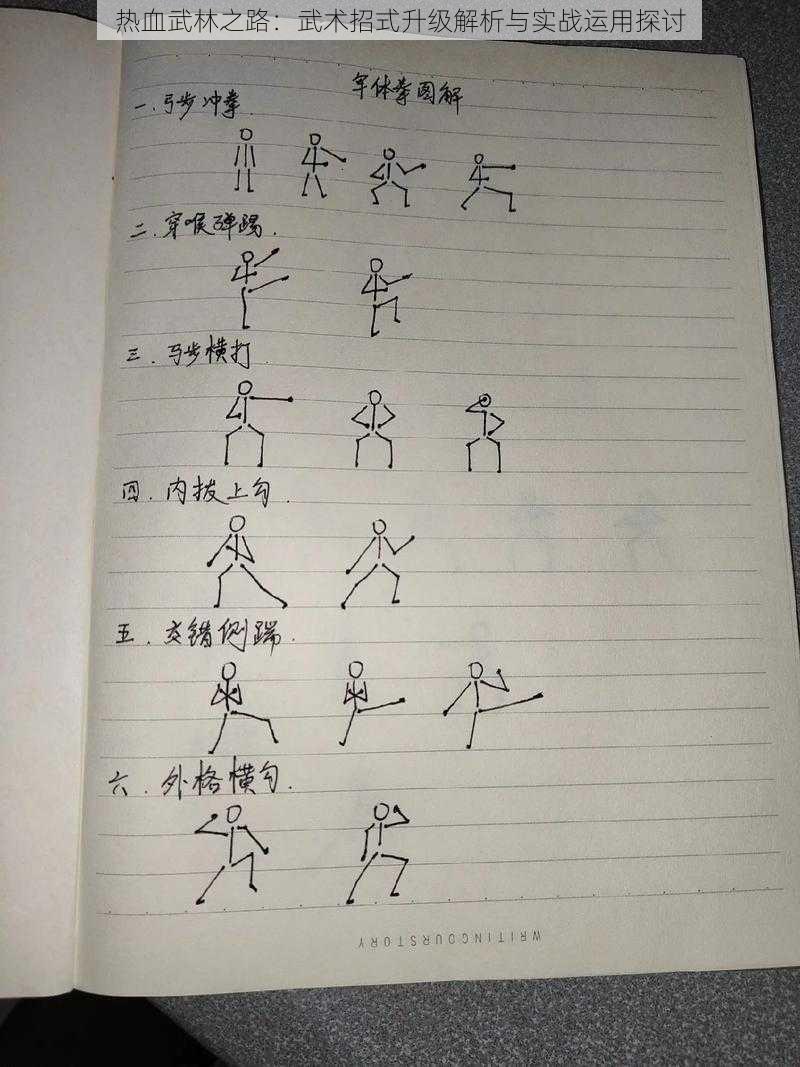 热血武林之路：武术招式升级解析与实战运用探讨
军体拳图解
一.弓步冲拳.
二.穿喉弹踢.
三.马步横打
四.内拨上勾.
五.交错侧踹.
六.外格横勾.
WRITINGOURSTORY